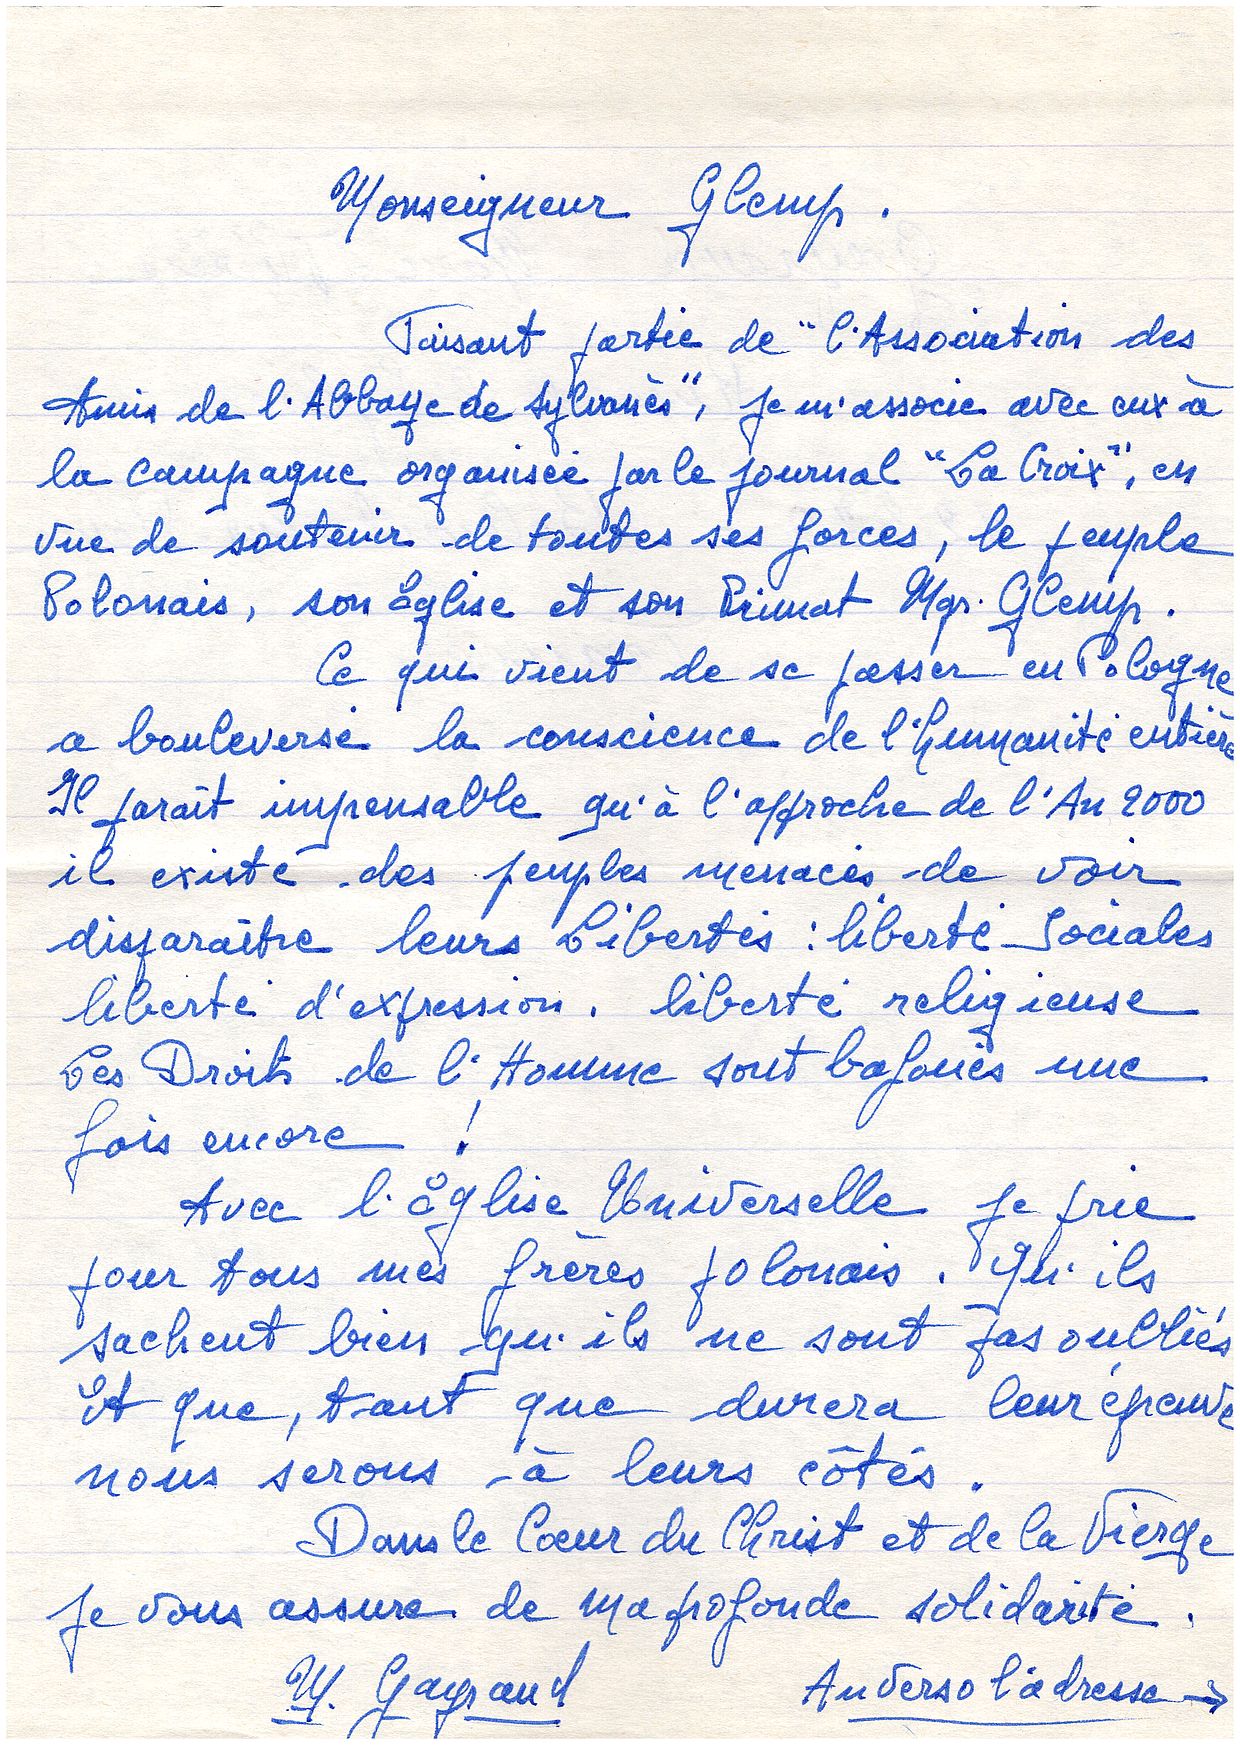 Monseigneur Glemp.
Faisant partie de "l'Association des
Amis de l'Abbaye de Sylvanès", je m'associe avec eux à
la campagne organisée par le journal "La Croix", en
vue de soutenir de toutes ses forces, le peuple
Polonais, son Église et son Primat Mgr. Glemp.
Ce qui vient de se passer en Pologne
a bouleversé la conscience de l'humanité entière
Il paraît impensable qu'à l'approche de l'An 2000
il existe des peuples menacés de voir
disparaître leurs Libertés : liberté Sociales
liberté d'expression. liberté religieuse
Les Droits de l'Homme sont bafoués une
fois encore !
Avec l'Église Universelle je prie
pour tous mes frères polonais. Qu'ils
sachent bien qu'ils ne sont pas oubliés
Et que, tant que durera leur épreuve
nous serons à leurs côtés.
Dans le Cœur du Christ et de la Vierge
je vous assure de ma profonde solidarité.
M. Gayraud
Au verso l'adresse →